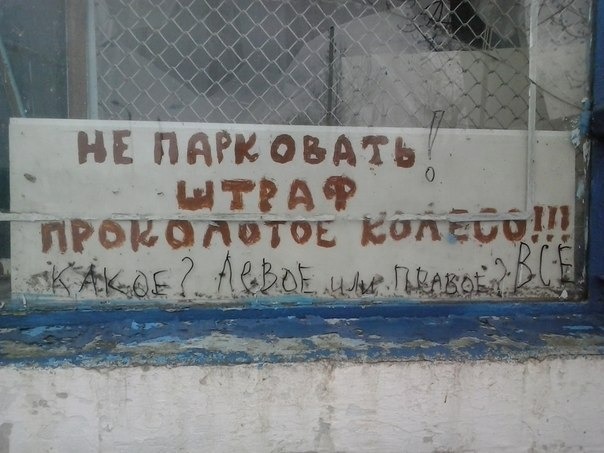 НЕ ПАРКОВАТЬ!
ШТРАФ
ПРОКОЛОТОЕ КОЛЕСО!!!
КАКОЕ? ЛЕВОЕ ИЛИ ПРАВОЕ? ВСЕ